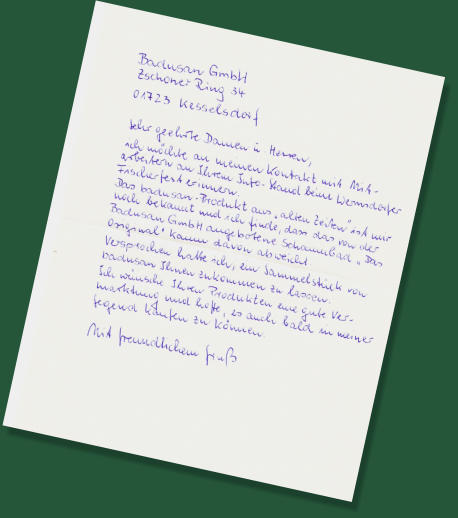 Badusan GmbH
Zschoner Ring 34
01723 Kesselsdorf
Sehr geehrte Damen u. Herren,
ich möchte an meinen Kontakt mit Mit-
arbeitern an Ihrem Info-Stand beim Wermsdorfer
Fischerfest erinnern.
Das badusan-Produkt aus „alten Zeiten" ist mir
noch bekannt und ich finde, dass das von der
Badusan GmbH angebotene Schaumbad „Das
Original" kaum davon abweicht.
Versprochen hatte ich, ein Sammelstück von
badusan Ihnen zukommen zu lassen.
Ich wünsche Ihren Produkten eine gute Ver-
marktung und hoffe, es auch bald in meiner
Gegend kaufen zu können.
Mit freundlichem Gruß